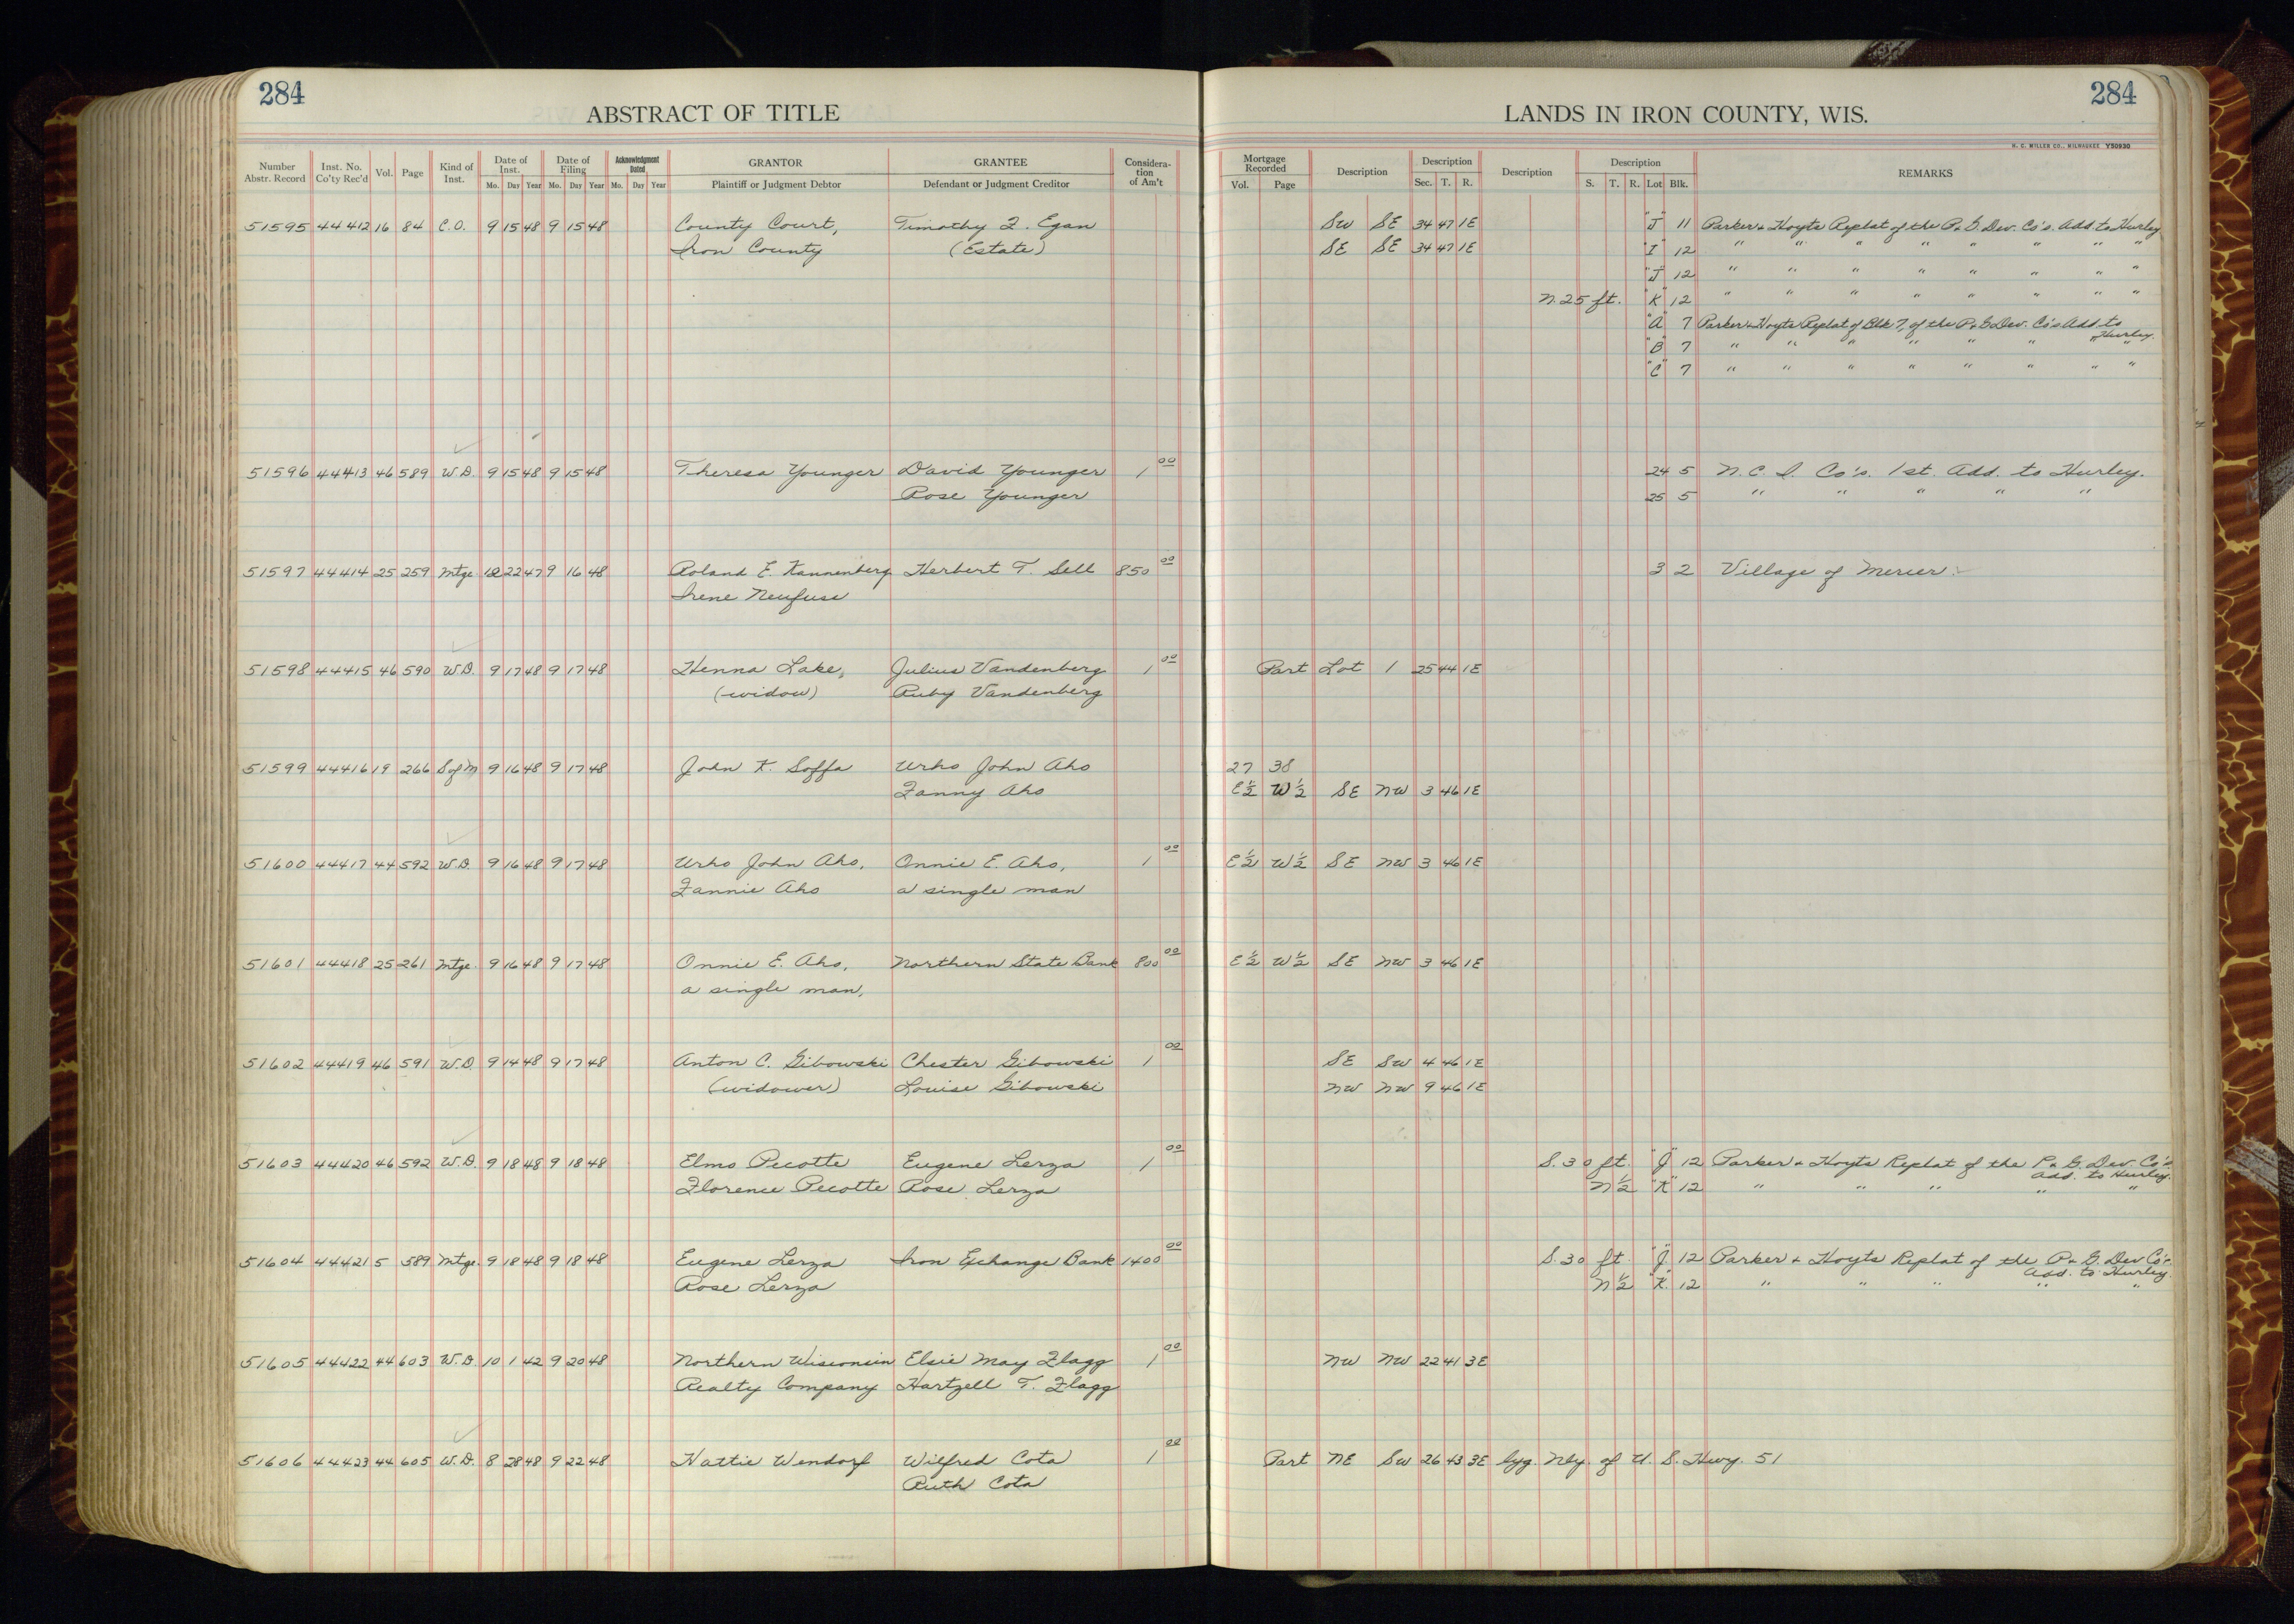 284
ABSTRACT OF TITLE
Number Abstr. Record Inst. No. Co'ty Rec'd Vol. Page Kind of Inst. Date of Inst. Date of Filing Acknowledgment Dated GRANTOR GRANTEE Considera-tion of Am't
Mo. Day Year Mo. Day Year Mo. Day Year Plaintiff or Judgment Debtor Defendant or Judgment Creditor
51595 44412 16 84 C.O. 9 15 48 9 15 48 County Court, Timothy F. Egan
Iron County (Estate)
51596 44413 46 589 W.D. 9 15 48 9 15 48 Theresa Younger David Younger 1 00
Rose Younger
51597 44414 25 259 Mtge 12 22 47 9 16 48 Roland E. Kannenberg Herbert T. Sell 850 00
Irene Neufuse
51598 44415 46 590 W.D. 9 17 48 9 17 48 Henna Lake, Julius Vandenberg 1 00
(widow) Ruby Vandenberg
51599 44416 19 266 S of M 9 16 48 9 17 48 John K. Soffa Urho John Aho
Fanny Aho
51600 44417 44 592 W.D. 9 16 48 9 17 48 Urho John Aho, Onnie E. Aho, 1 00
Fannie Aho a single man
51601 44418 25 261 Mtge. 9 16 48 9 17 48 Onnie E. Aho, Northern State Bank 800 00
a single man,
51602 44419 46 591 W.D. 9 14 48 9 17 48 Anton C. Gibowski Chester Gibowski 1 00
(widower) Louise Gibowski
51603 44420 46 592 W.D. 9 18 48 9 18 48 Elmo Pecotte Eugene Lerza 1 00
Florence Pecotte Rose Lerza
51604 44421 5 589 Mtge. 9 18 48 9 18 48 Eugene Lerza Iron Exchange Bank 1400 00
Rose Lerza
51605 44422 44 603 W.D 10 1 42 9 20 48 Northern Wisconsin Elsie May Flagg 1 00
Realty Company Hartzell T. Flagg
51606 44423 44 605 W.D. 8 28 48 9 22 48 Hattie Wendorf Wilfred Cota 1 00
Ruth Cota
284
LANDS IN IRON COUNTY, WIS.
H. C. MILLER CO., MILWAUKEE Y50930
Mortgage Recorded Description Description Description Description REMARKS
Vol. Page Sec. T. R. S. T. R. Lot Blk.
SW SE 34 47 1E "J" 11 Parker & Hoyts Replat of the P. & G. Dev. Co's. Add. to Hurley
SE SE 34 47 1E "I" 12 " " " " " " " "
"J" 12 " " " " " " " "
N. 25 ft. "K" 12 " " " " " " " "
"A" 7 Parker & Hoyts Replat of Blk 7, of the P. & G. Dev. Co's Add to
Hurley.
"B" 7 " " " " " " " "
"C" 7 " " " " " " " "
24 5 N. C. I. Co's. 1st. Add. to Hurley.
25 5 " " " " "
3 2 Village of Mercer.
Part Lot 1 25 44 1E
27 38
E½ W½ SE NW 3 46 1E
E½ W½ SE NW 3 46 1E
E½ W½ SE NW 3 46 1E
SE SW 4 46 1E
NW NW 9 46 1E
S. 30 ft. "J" 12 Parker & Hoyts Replat of the P. & G. Dev. Co's
Add. to Hurley.
N½ "K" 12 " " " " "
S. 30 ft. "J" 12 Parker & Hoyts Replat of the P. & G. Dev Co's.
Add. to Hurley.
N½ "K" 12 " " " " "
NW NW 22 41 3E
Part NE SW 26 43 3E lyg. Nly. of U. S. Hwy. 51